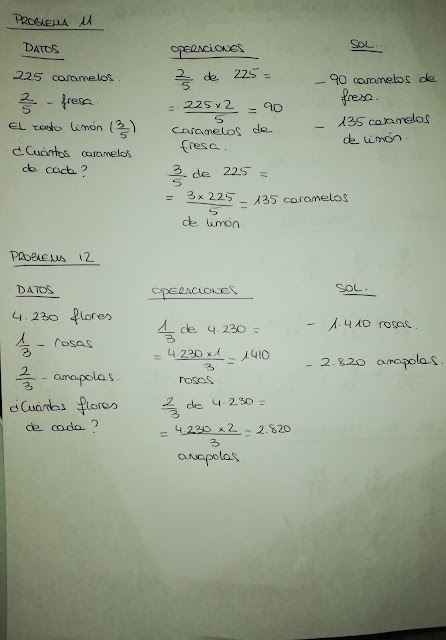 PROBLEMA 11
DATOS
225 caramelos.
2/5 - fresa.
El resto limón (3/5)
¿Cuántos caramelos
de cada?
OPERACIONES
2/5 de 225 =
= 225 x 2 / 5 = 90
caramelos de
fresa.
3/5 de 225 =
= 3 x 225 / 5 = 135 caramelos
de limón.
SOL.
- 90 caramelos de
fresa.
- 135 caramelos
de limón.
PROBLEMA 12
DATOS
4.230 flores
1/3 - rosas.
2/3 - anapolas.
¿Cuántas flores
de cada?
OPERACIONES
1/3 de 4.230 =
= 4.230 x 1 / 3 = 1410
rosas.
2/3 de 4.230 =
= 4.230 x 2 / 3 = 2.820
anapolas.
SOL.
- 1.410 rosas.
- 2.820 anapolas.